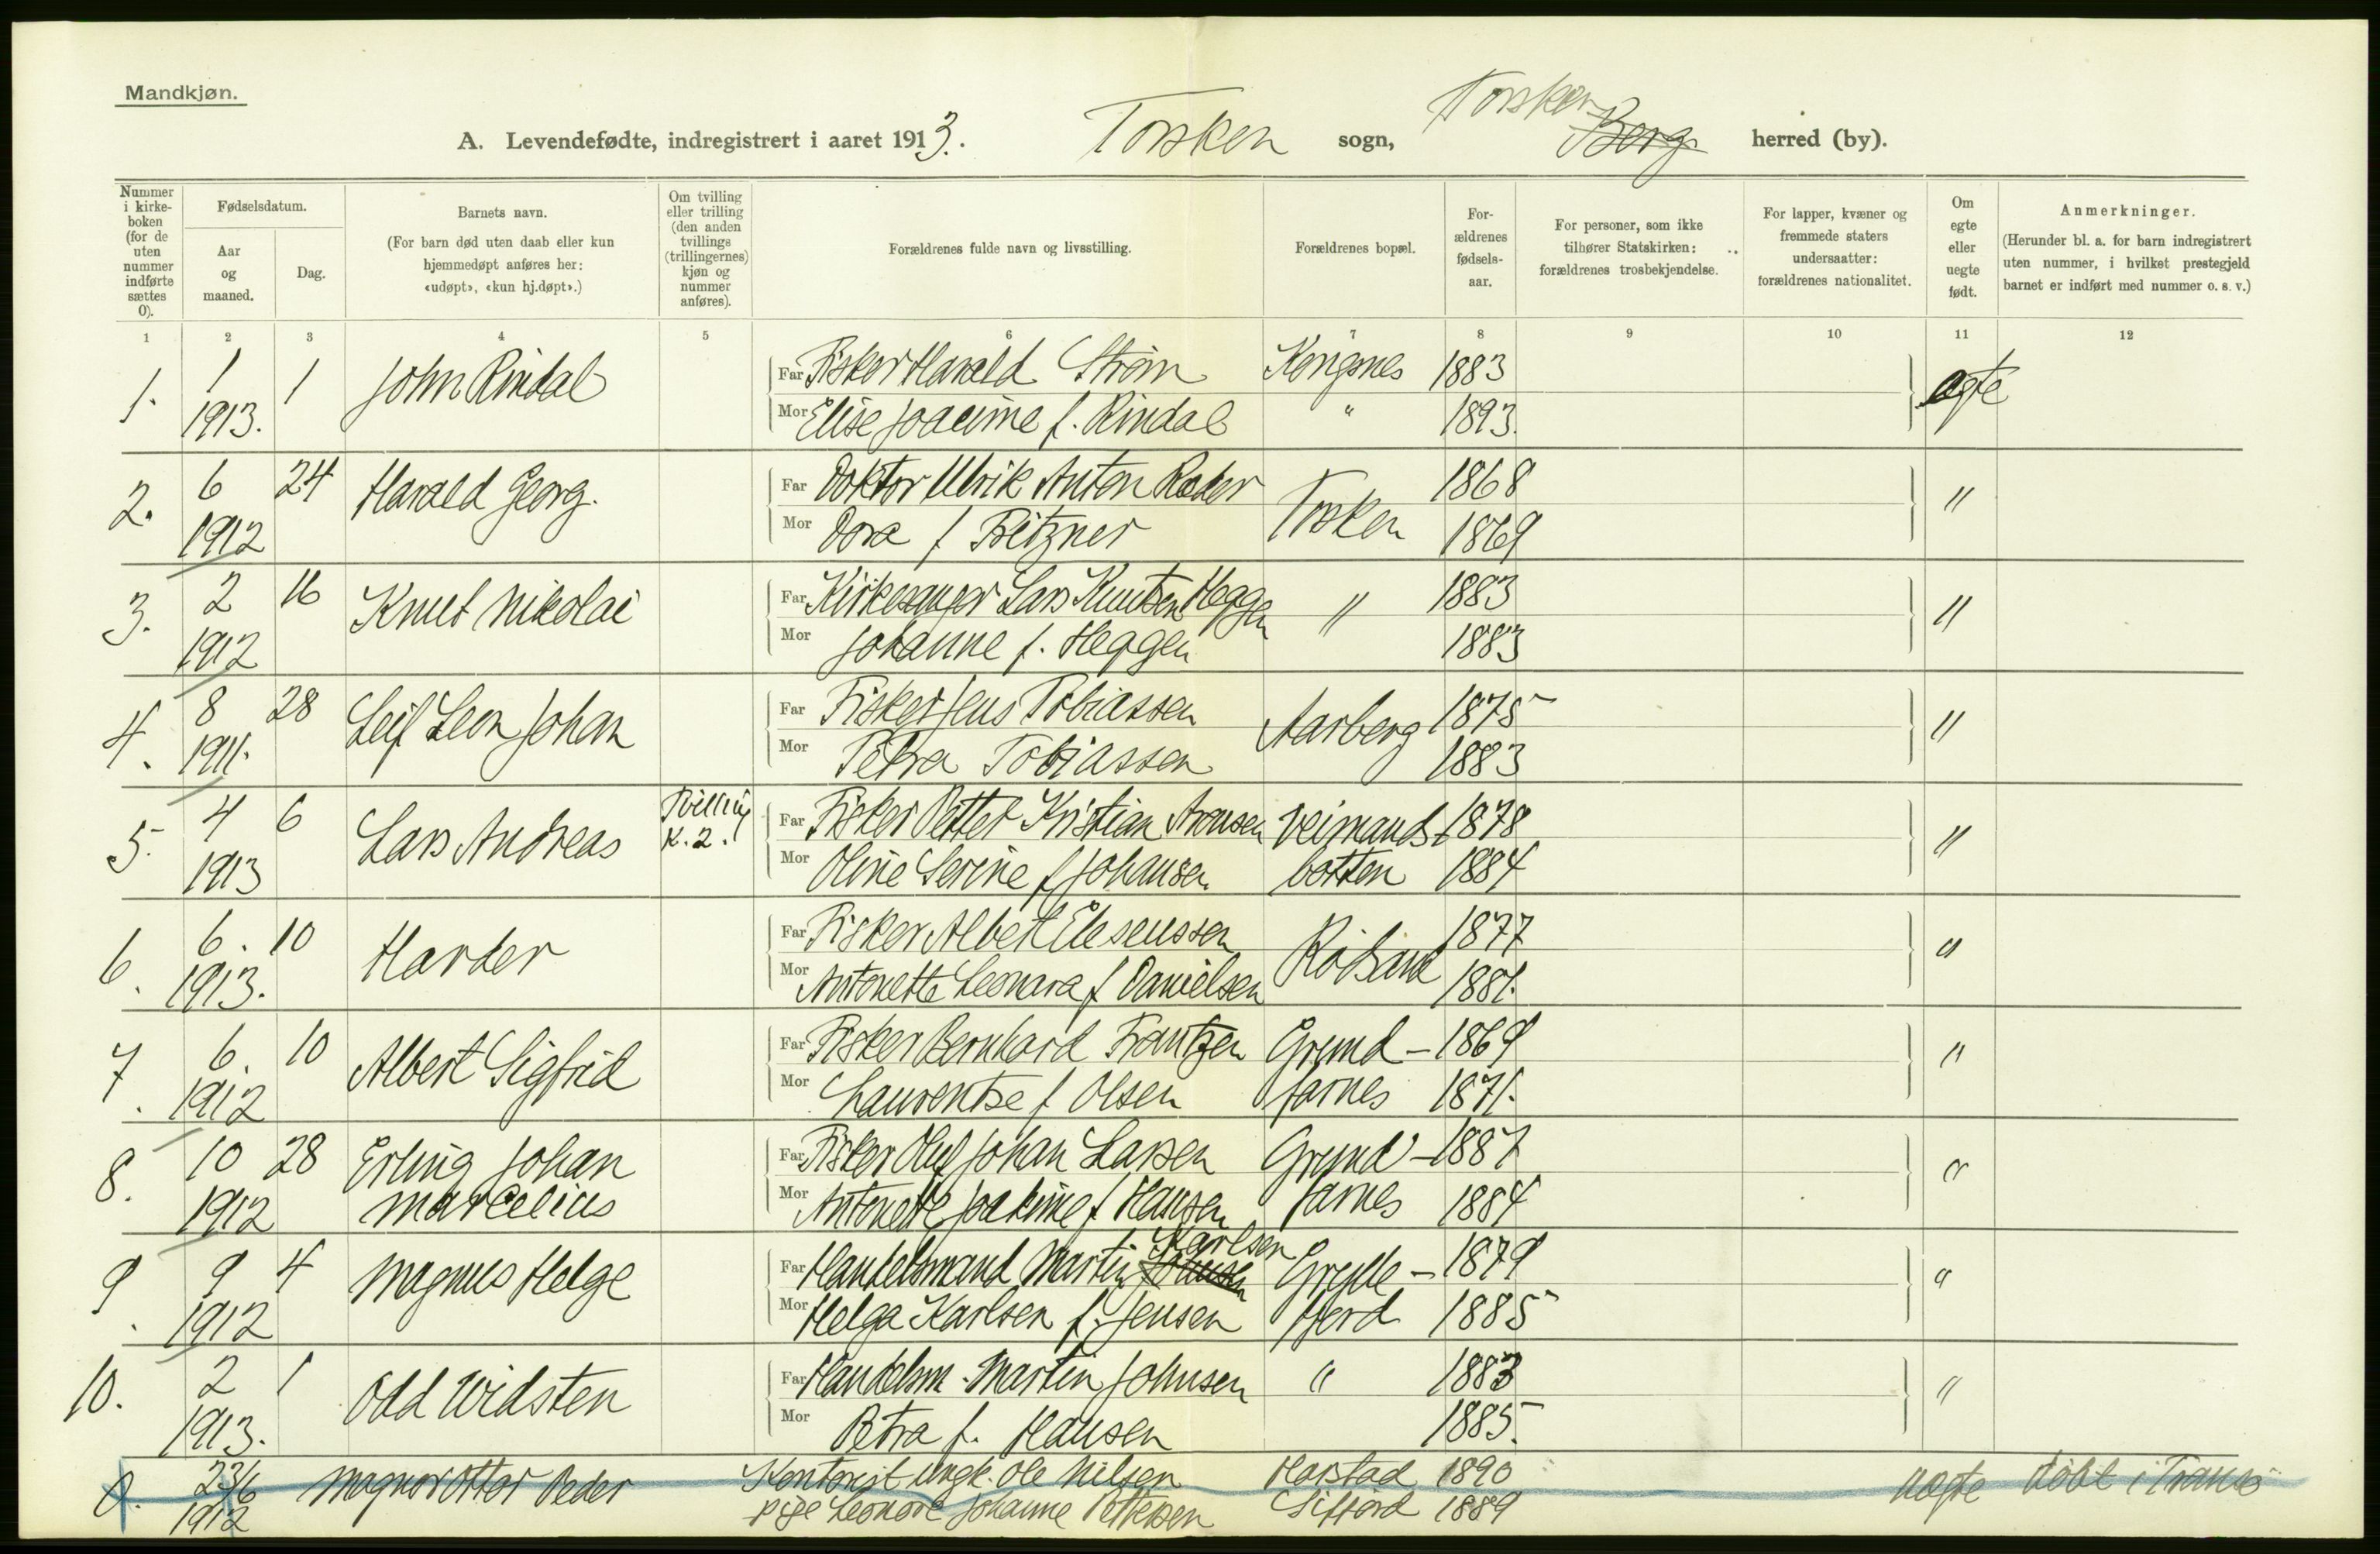 Mandkjøn.
A. Levendefødte, indregistrert i aaret 1913. Torsken sogn, Torsken Berg herred (by).
Nummer i kirkeboken (for de uten nummer indførte sættes 0).
Fødselsdatum.
Aar og maaned.
Dag.
Barnets navn.
(For barn død uten daab eller kun hjemmedøpt anføres her: «udøpt», «kun hj.døpt».)
Om tvilling eller trilling (den anden tvillings (trillingernes) kjøn og nummer anføres).
Forældrenes fulde navn og livsstilling.
Forældrenes bopæl.
Forældrenes fødselsaar.
For personer, som ikke tilhører Statskirken: forældrenes trosbekjendelse.
For lapper, kvæner og fremmede staters undersaatter: forældrenes nationalitet.
Om egte eller uegte født.
Anmerkninger.
(Herunder bl. a. for barn indregistrert uten nummer, i hvilket prestegjeld barnet er indført med nummer o. s. v.)
1 2 3 4 5 6 7 8 9 10 11 12
1. 1 1913. 1 John Rindal Far Fisker Harald Strøm Kongsnes 1883 egte
Mor Elise Joacime f. Rindal " 1893.
2. 6 1912 24 Harald Georg. Far Doktor Ulrik Anton Røder Torsken 1868 "
Mor Dora f Fritzner 1869
3. 2 1912 16 Knut Nikolai Far Kirkesanger Lars Knutsen Heggen " 1883 "
Mor Johanne f. Heggen 1883
4. 8 1911. 28 Leif Leon Johan Far Fisker Jens Tobiassen Aarberg 1875 "
Mor Petra Tobiassen 1883
5. 4 1913 6 Lars Andreas Tvilling K. 2. Far Fisker Petter Kristian Aronsen Veimands- 1878 "
Mor Oline Serine f Johansen botten 1884
6. 6. 1913. 10 Harder Far Fisker Albert Elesenssen Rødsand 1877 "
Mor Antonette Leonora f Danielsen 1881.
7. 6. 1912 10 Albert Sigfrid Far Fisker Bernhard Frantzen Grund- 1869 "
Mor Laurentse f Olsen farnes 1871.
8. 10 1912 28 Erling Johan Marcelius Far Fisker Oluf Johan Larsen Grund- 1887 "
Mor Antonette Joakime f Hansen farnes 1884
9. 9 1912 4 Magnus Helge Far Handelsmand Martin Johnsen Karlsen Grylle- 1879 "
Mor Helga Karlsen f. Jensen fjord 1885
10. 2 1913. 1 Odd Widsten Far Handelsm. Martin Johnsen " 1883 "
Mor Petra f. Hansen 1885.
0. 23/6 1912 Magnor Ottar Peder Kontorist ungk. Ole Nilsen Harstad 1890 uegte døbt i Tranø
pige Leonore Johanne Pettersen Sifjord 1889